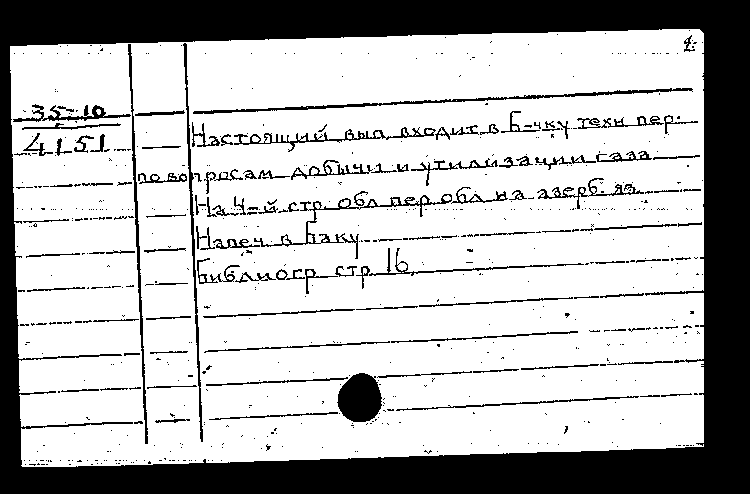 2.
35-10
4151
Настоящий вып. входит в Б-чку техн пер.
по вопросам добычи и утилизации газа
На 4-й стр. обл пер обл на азерб. яз.
Напеч. в Баку
Библиогр стр 16.